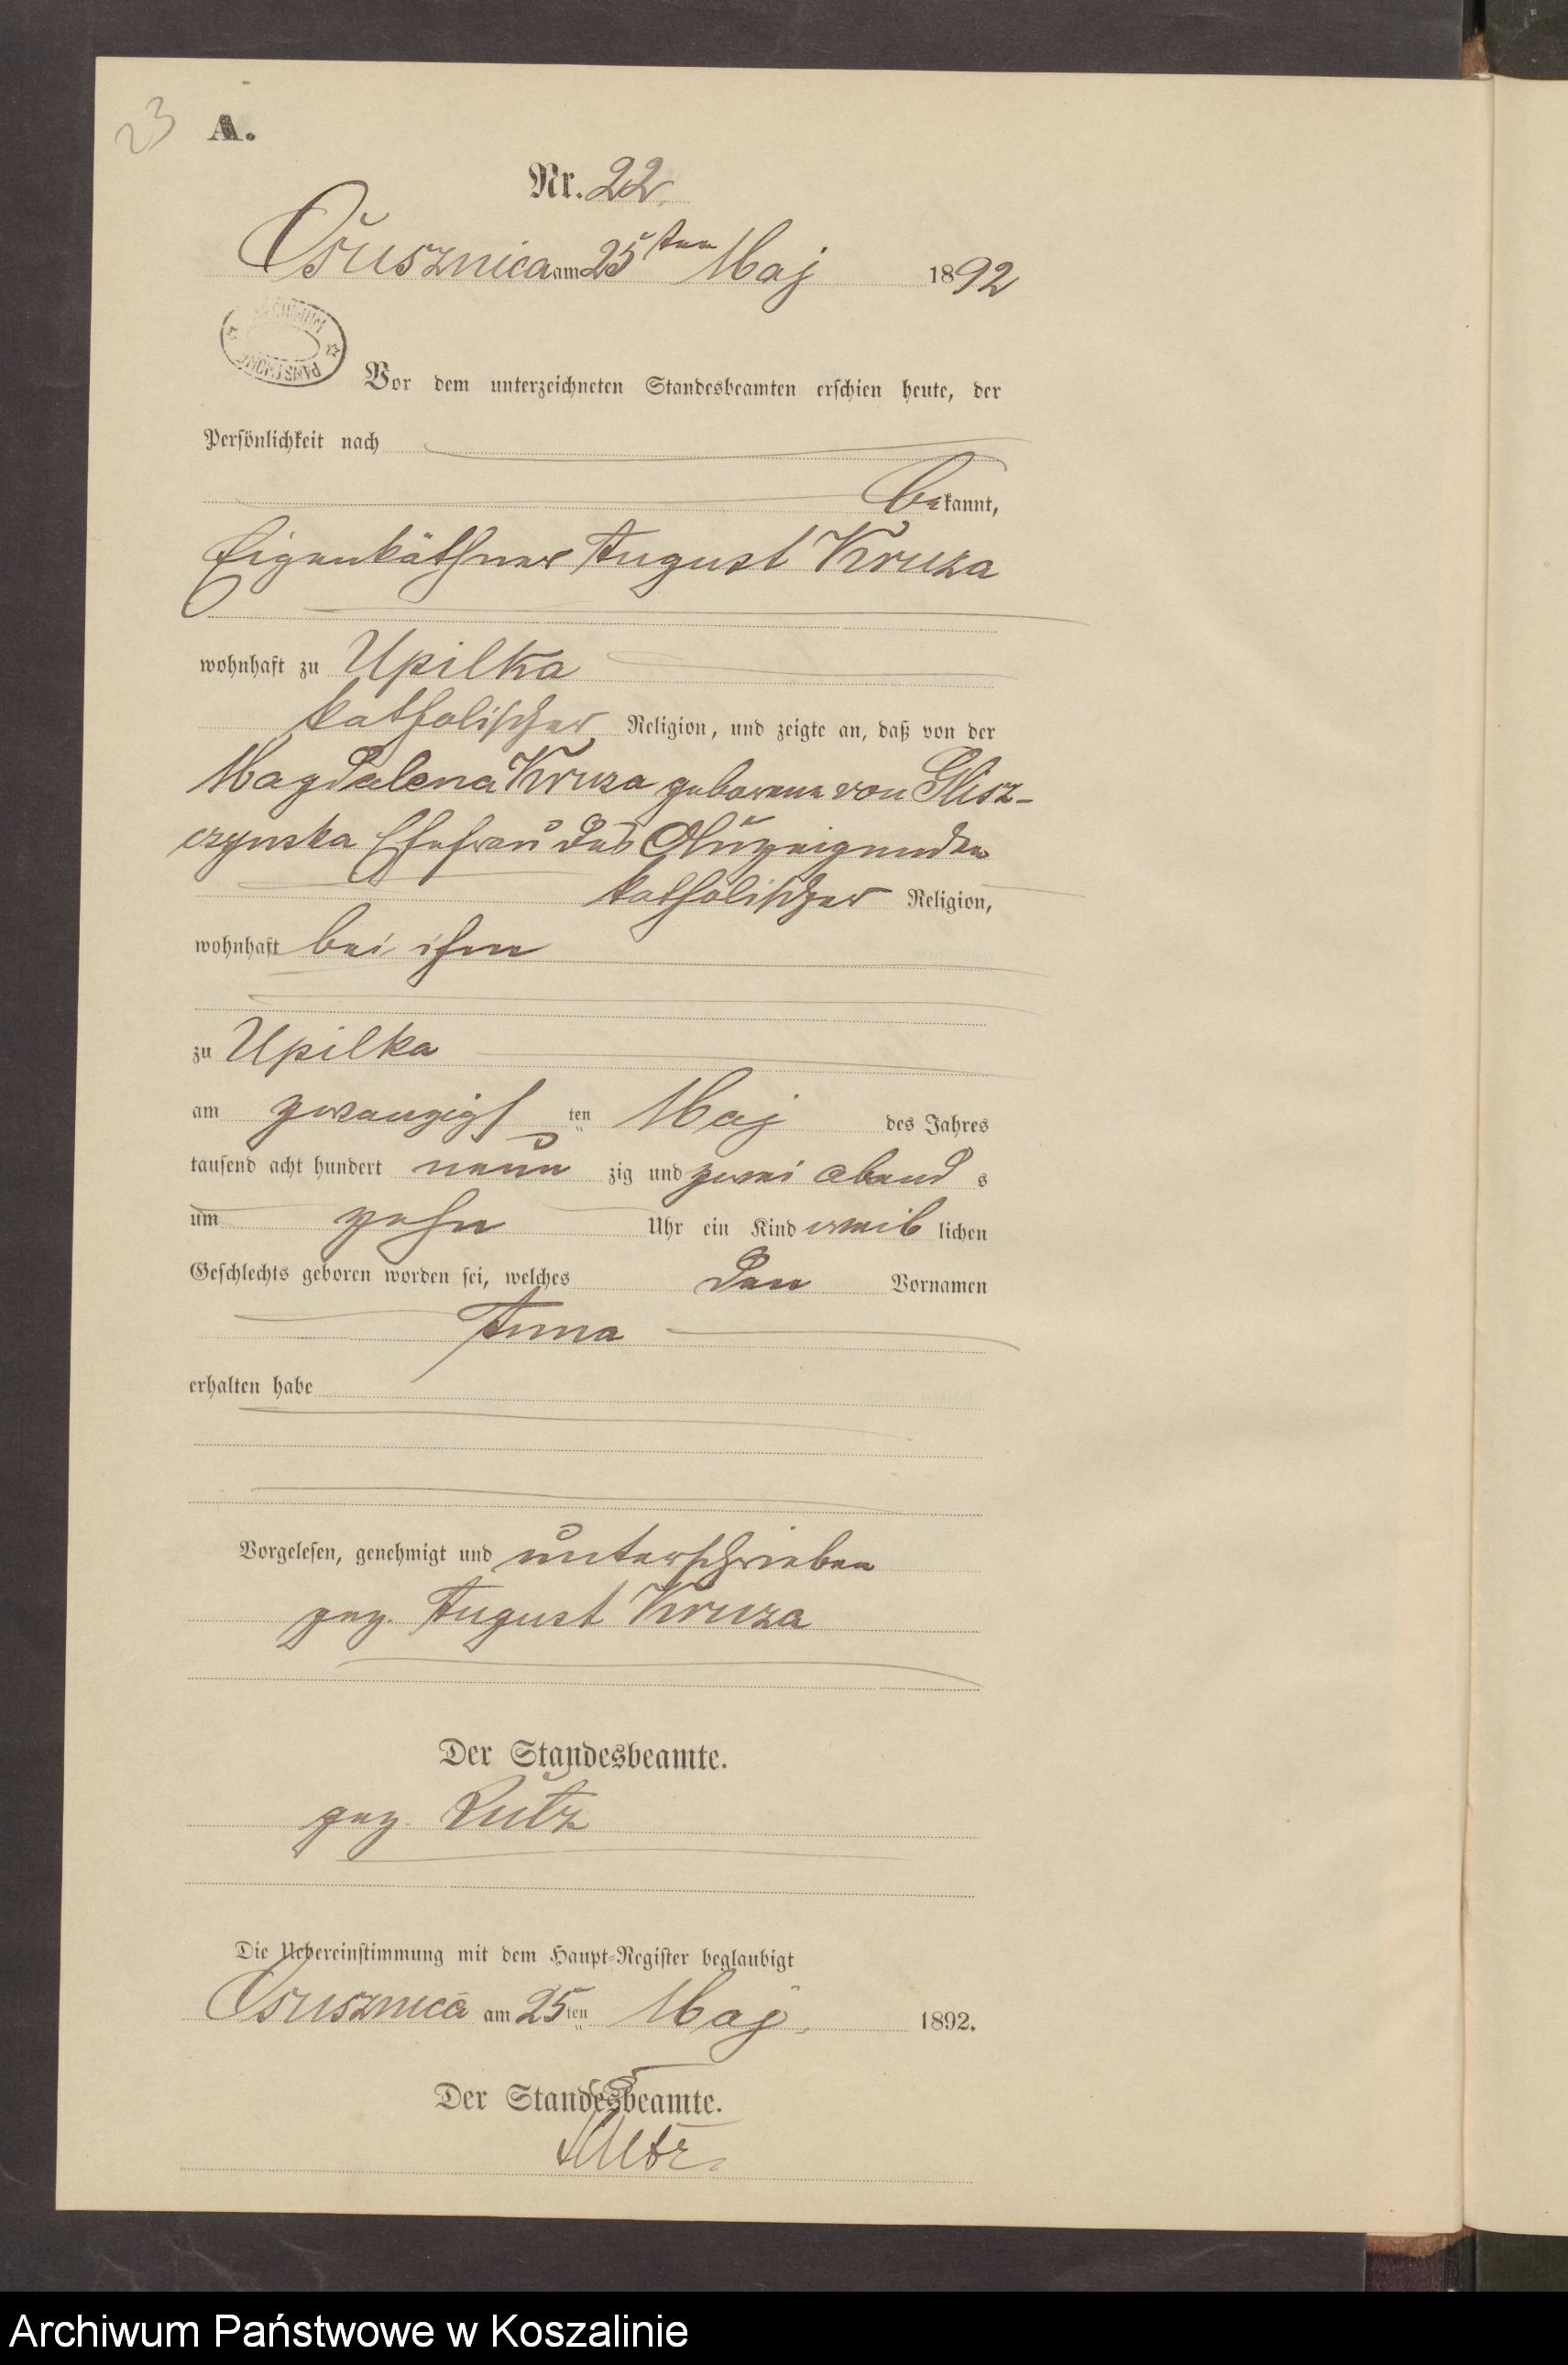 23
A.
Nr. 22.
Osusznica am 25ten Maj 1892
ARCHIWUM
PAŃSTWOWE
Vor dem unterzeichneten Standesbeamten erschien heute, der
Persönlichkeit nach
bekannt,
Eigenkäthner August Kruza
wohnhaft zu Upilka
katholischer Religion, und zeigte an, daß von der
Magdalena Kruza geborene von Glisz-
czynska Ehefrau des Anzeigenden
katholischer Religion,
wohnhaft bei ihm
zu Upilka
am zwanzigsten Maj des Jahres
tausend acht hundert neunzig und zwei abends
um zehn Uhr ein Kind weiblichen
Geschlechts geboren worden sei, welches den Vornamen
Anna
erhalten habe
Vorgelesen, genehmigt und unterschrieben
gez. August Kruza
Der Standesbeamte.
gez. Lutz
Die Uebereinstimmung mit dem Haupt-Register beglaubigt
Osusznica am 25ten Maj. 1892.
Der Standesbeamte.
Lutz.
Archiwum Państwowe w Koszalinie